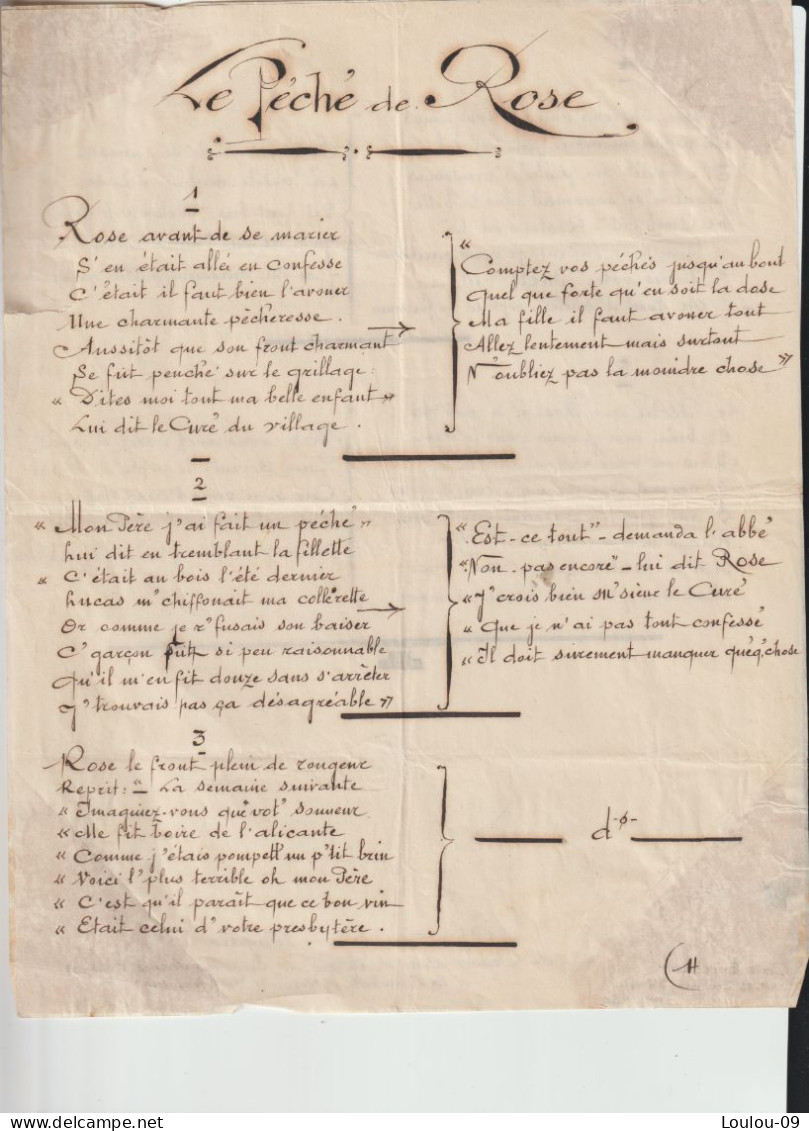 Le Péché de Rose
1
Rose avant de se marier
S'en était allée en confesse
C'était il faut bien l'avouer
Une charmante pêcheresse.
Aussitôt que son front charmant
Se fût penché sur le grillage :
« Dites moi tout ma belle enfant »
Lui dit le Curé du village.
«
Comptez vos péchés jusqu'au bout
Quel que forte qu'en soit la dose
Ma fille il faut avouer tout
Allez lentement mais surtout
N'oubliez pas la moindre chose »
2
« Mon Père j'ai fait un péché »
Lui dit en tremblant la fillette
« C'était au bois l'été dernier
Lucas m'chiffonait ma collerette
Or comme je r'fusais son baiser
C'garçon fût si peu raisonnable
Qu'il m'en fit douze sans s'arrêter
J'trouvais pas ça désagréable »
"Est-ce tout" - demanda l'abbé
"Non pas encore" - lui dit Rose
« J'crois bien M'sieue le Curé
« Que je n'ai pas tout confessé
« Il doit surement manquer quéq'chose
3
Rose le front plein de rougeur
Reprit : " La semaine suivante
« Imaginez-vous que vot' sonneur
« Me fit boire de l'alicante
« Comme j'étais pompett' un p'tit brin
« Voici l'plus terrible oh mon Père
« C'est qu'il paraît que ce bon vin
« Etait celui d'votre presbytère.
d°
(H
Loulou-09